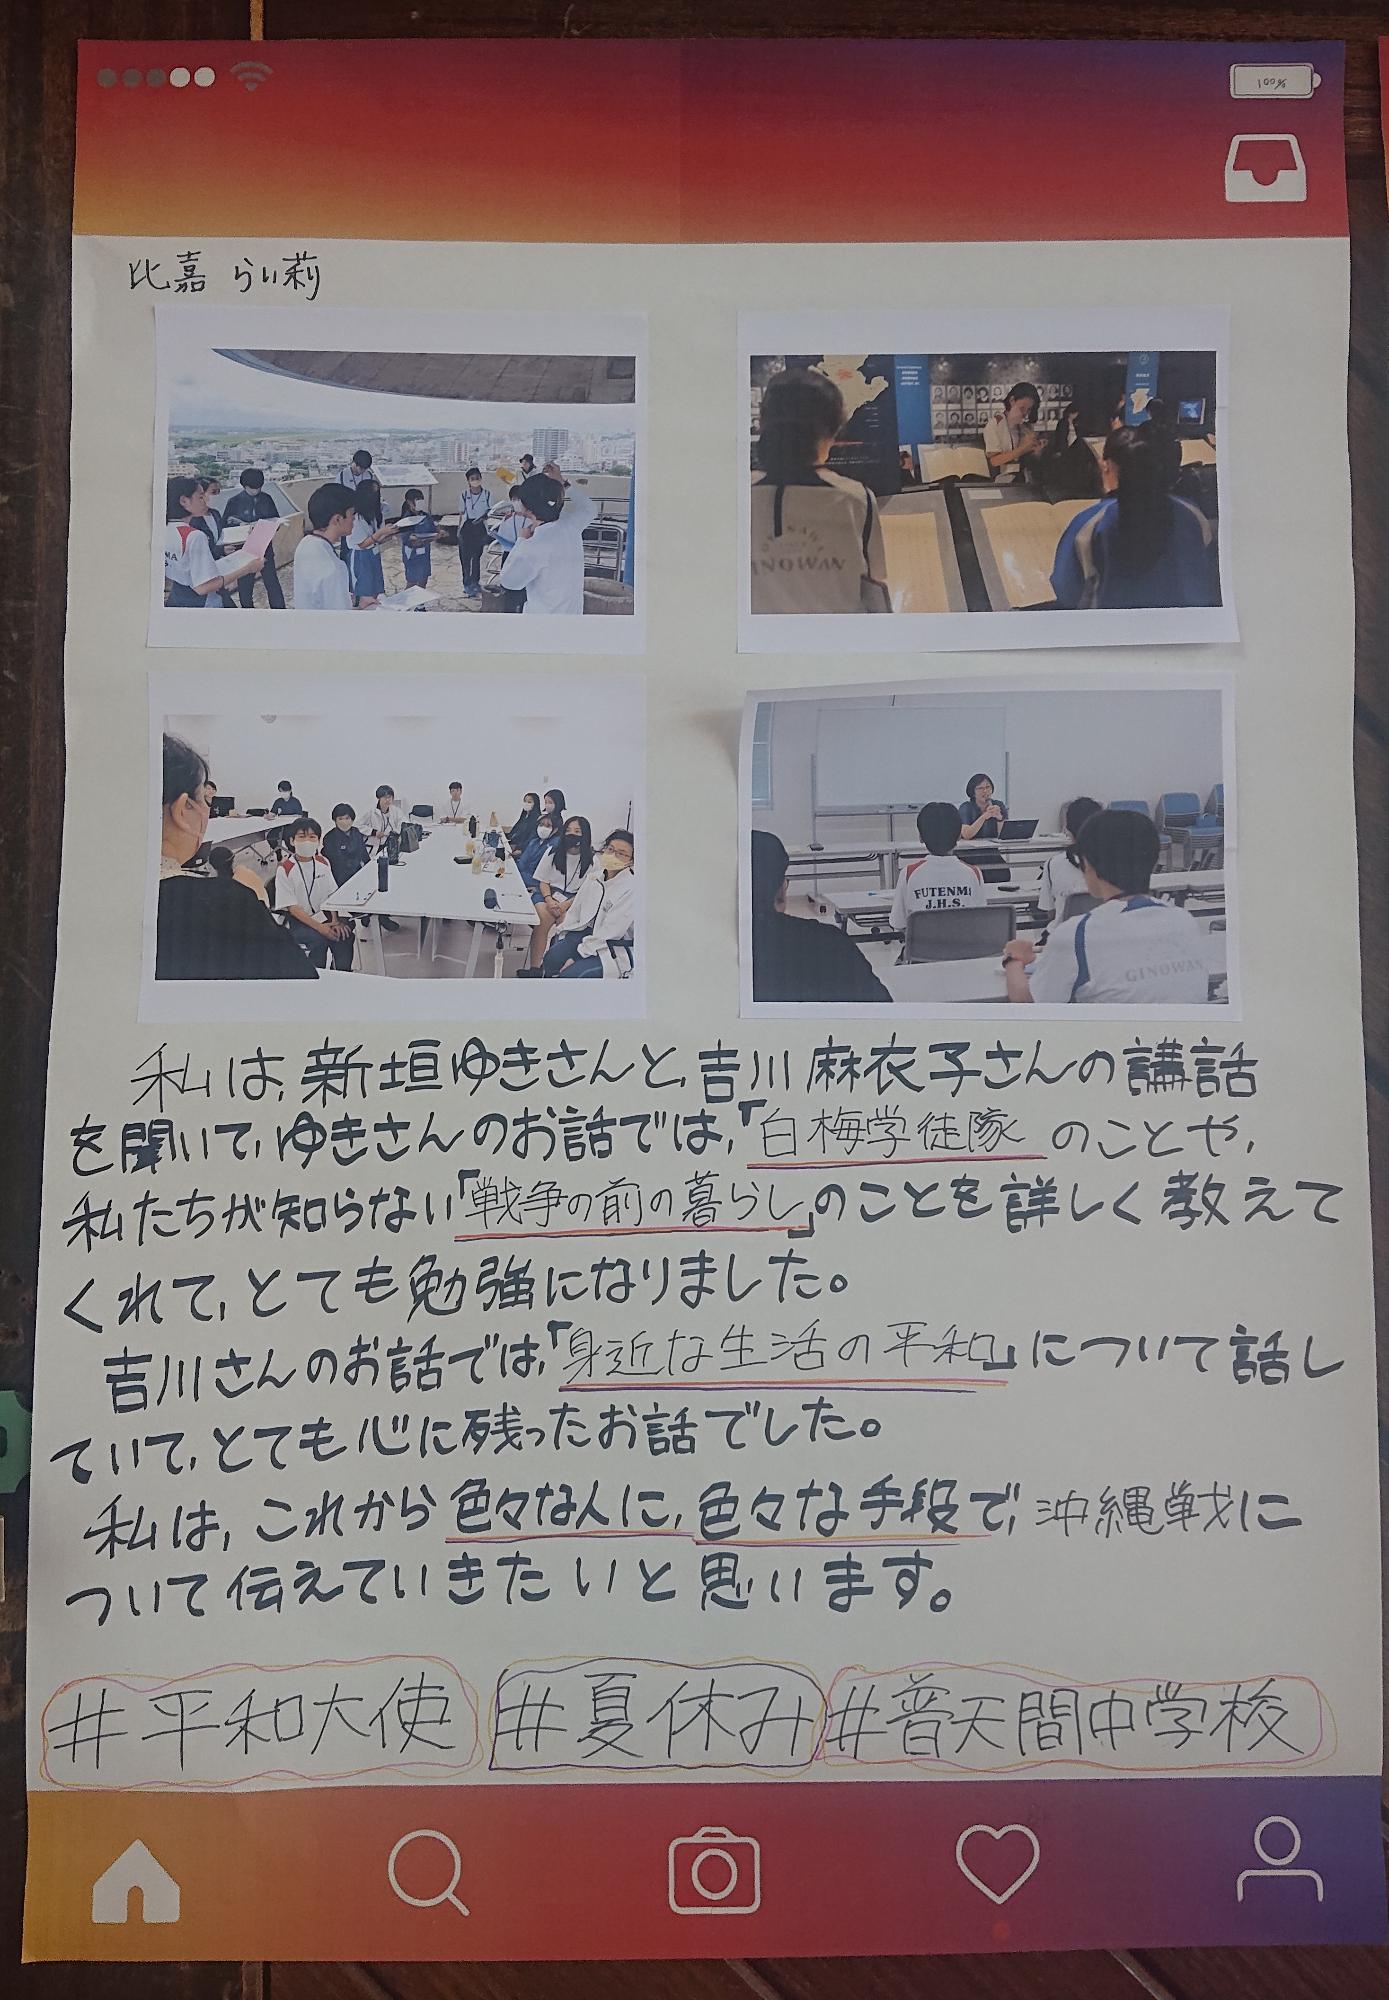 100%
比嘉 らい莉
INOWAN
FUTENMA
J.H.S.
GINOWAN
私は、新垣ゆきさんと、吉川麻衣子さんの講話
を聞いて、ゆきさんのお話では、「白梅学徒隊 のことや、
私たちが知らない「戦争の前の暮らし」のことを詳しく教えて
くれて、とても勉強になりました。
吉川さんのお話では、「身近な生活の平和」について話し
ていて、とても心に残ったお話でした。
私は、これから色々な人に、色々な手段で、沖縄戦に
ついて伝えていきたいと思います。
#平和大使 #夏休み #普天間中学校